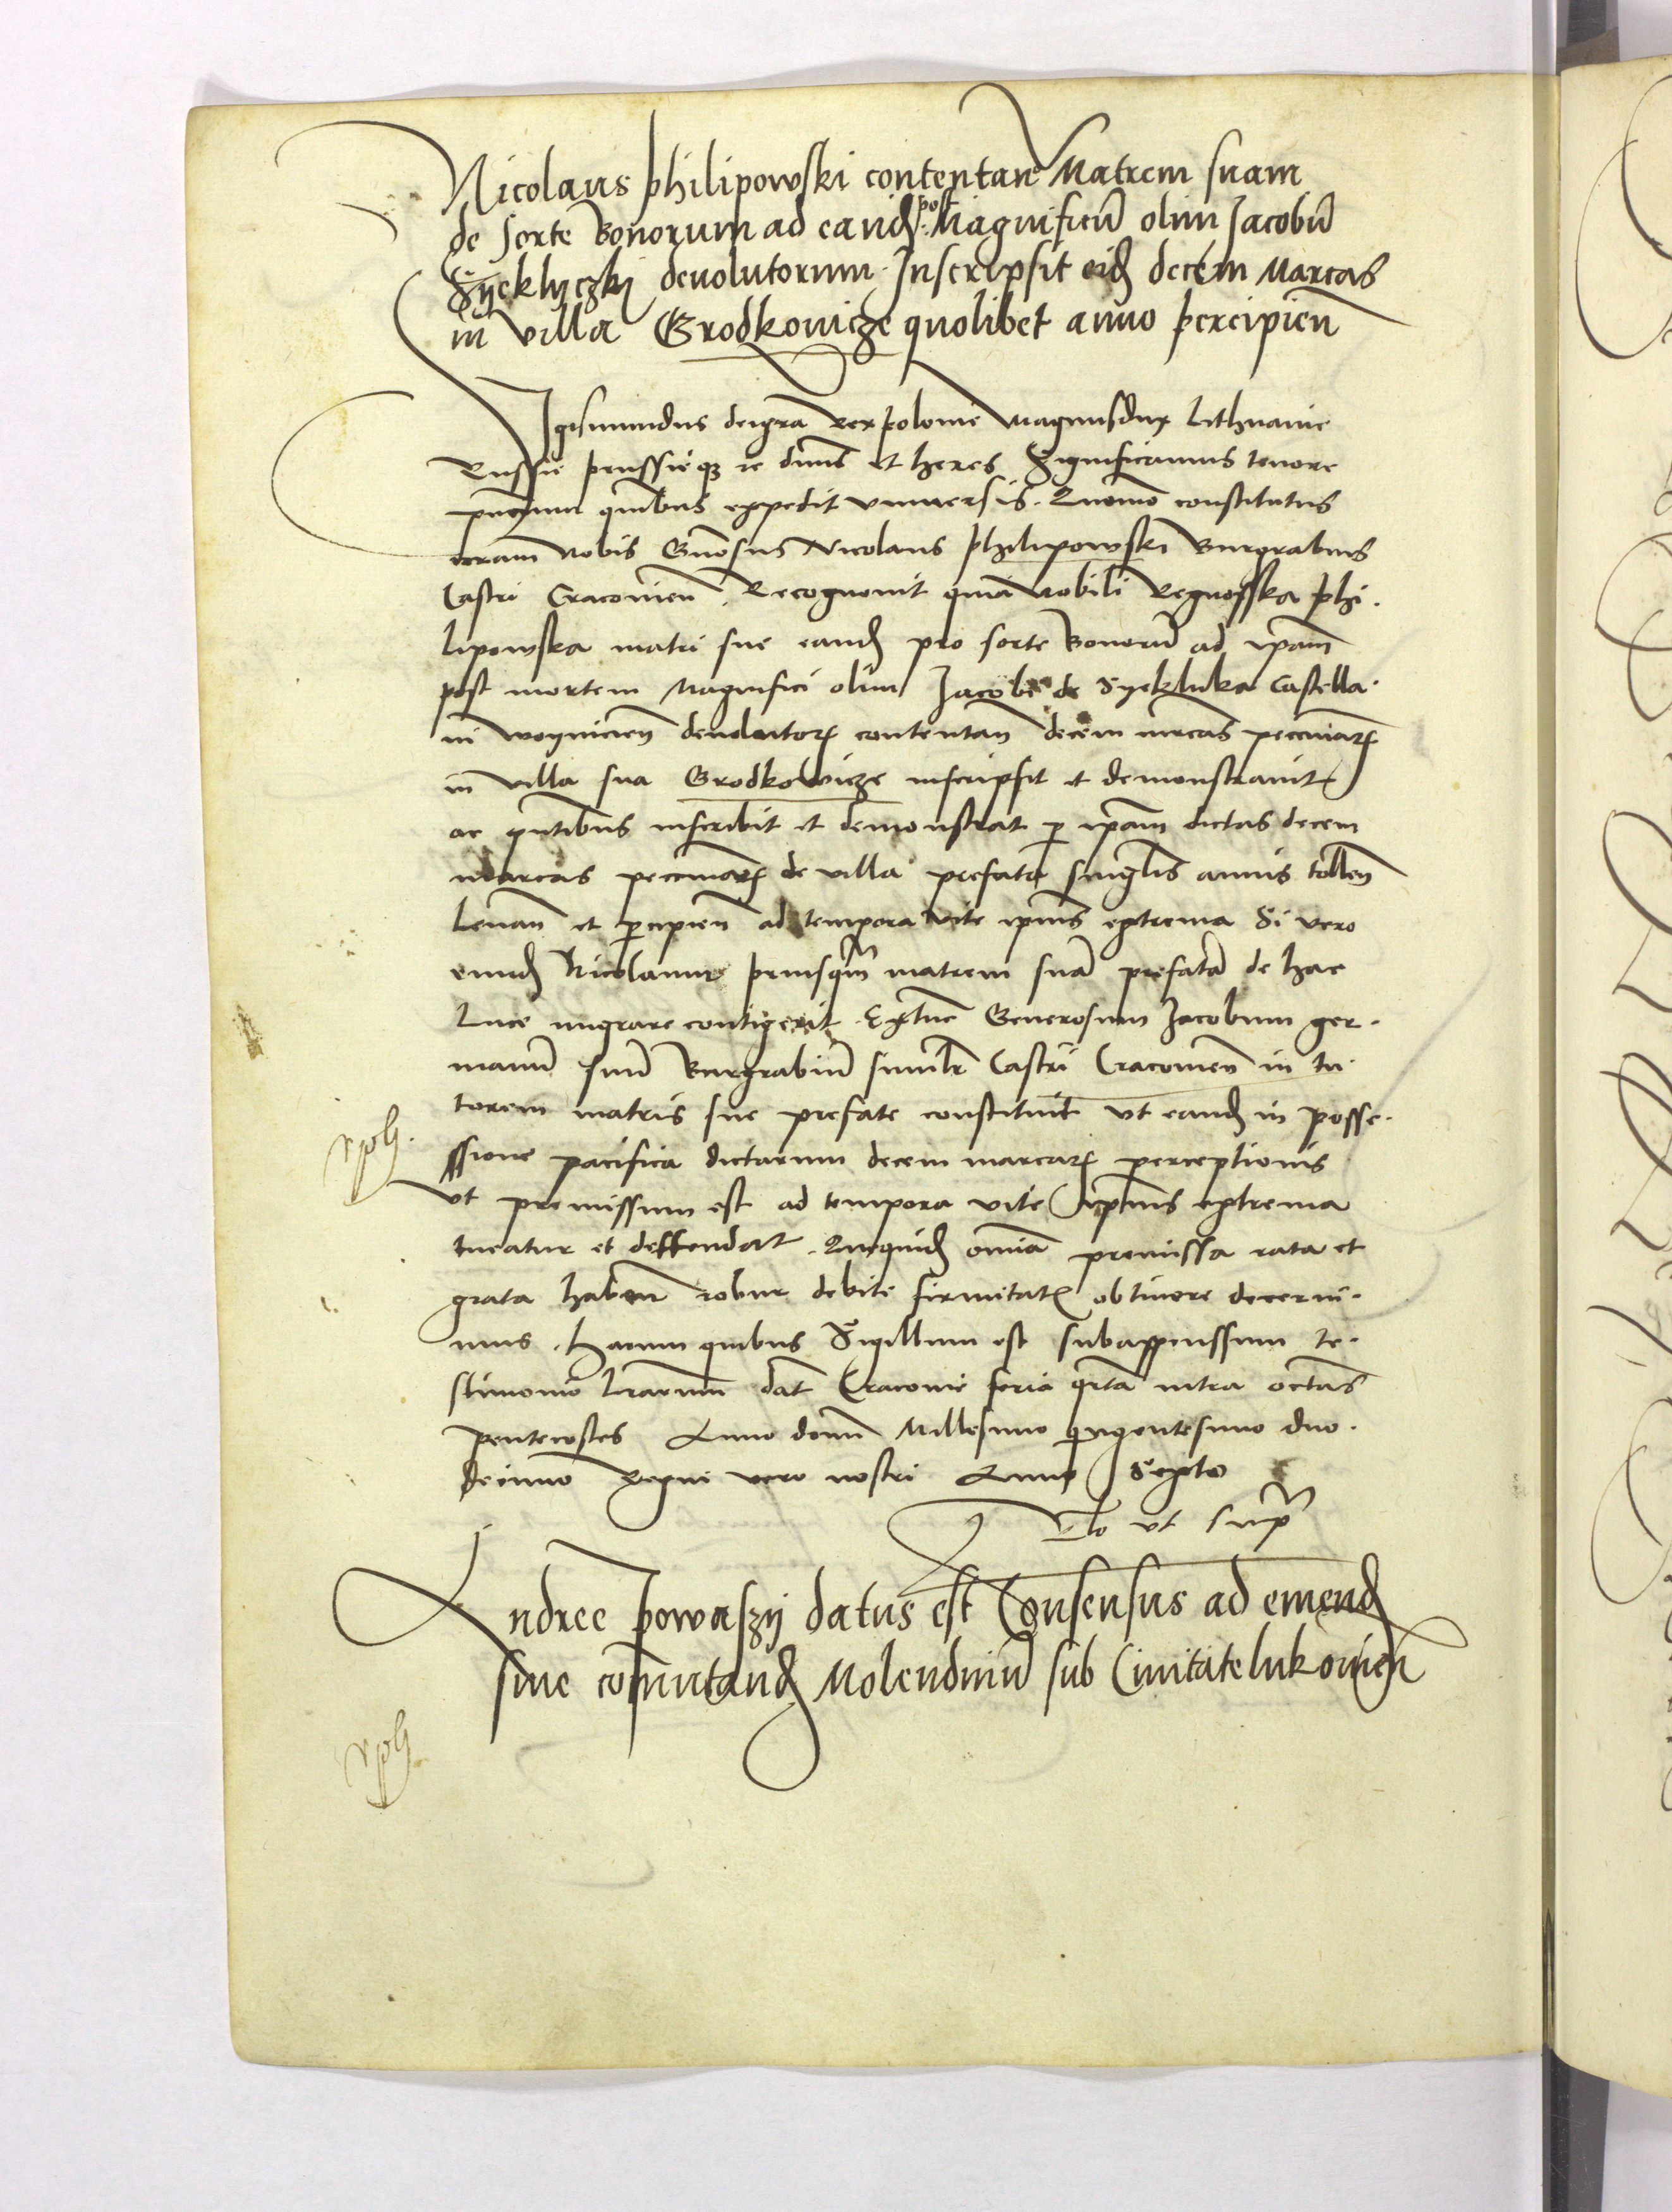 Nicolaus philipowski contentan Matrem suam
de sorte Bonorum ad eand post Magnificū olim Jacobū
Syeklyczki deuolutorum. Inscripsit eid decem Marcas
in villa Grodkovicze quolibet anno percipien
Igismundus dei gra Rex polonie Magnusdux Lithuanie
Russie prussieqz ⁊c dnus et heres Significamus tenore
pntium quibus expedit vniuersis. Quomo constitutus
coram nobis Gnosus Nicolaus philipowski Burgrabius
Castri Cracouien. Recognouit quia nobili Regnosska phi.
lipowska matri sue eand pro sorte Bonorū ad ipam
post mortem Magnifici olim Jacobi de Syekluka Castella.
ni woynicien deuolutorꝝ contentan decem mrcas pecciniarꝝ
in villa sua Grodkowicze inscripsit et demonstrauit
ac pntibus inscribit et demonstrat p ipam dictas decem
marcas pecuniarꝝ de villa prefata singlis annis tollen
Leuan et pcipien ad tempora vite ipius extrema Si vero
eund Nicolaum priusqm matrem suā prefatā de hac
Luce migrare contigerit. Extunc Generosum Jacobum ger.
manū suū Burgrabiū similr Castri Cracouien in tu.
torem matris sue prefate constituit vt eand in posse.
ssione pacifica dictarum decem marcarꝝ perceptionis
vt premissum est ad tempora vite ipius extrema
tueatur et deffendat. Quequid omia premissa rata et
grata haben robur debite firmitatꝭ obtinere decerni.
mus. Harum quibus Sigillum est subappenssum te.
stimonio lrarum dat Cracouie feria qrta intra octas
pentecostes Anno domi Millesimo quigentesimo duo.
decimo Regni vero nostri Anno Sexto
Rlo vt supr
Andree powaszij datus est Consensus ad emend
siue comutand Molendinū sub Ciuitate lukouien